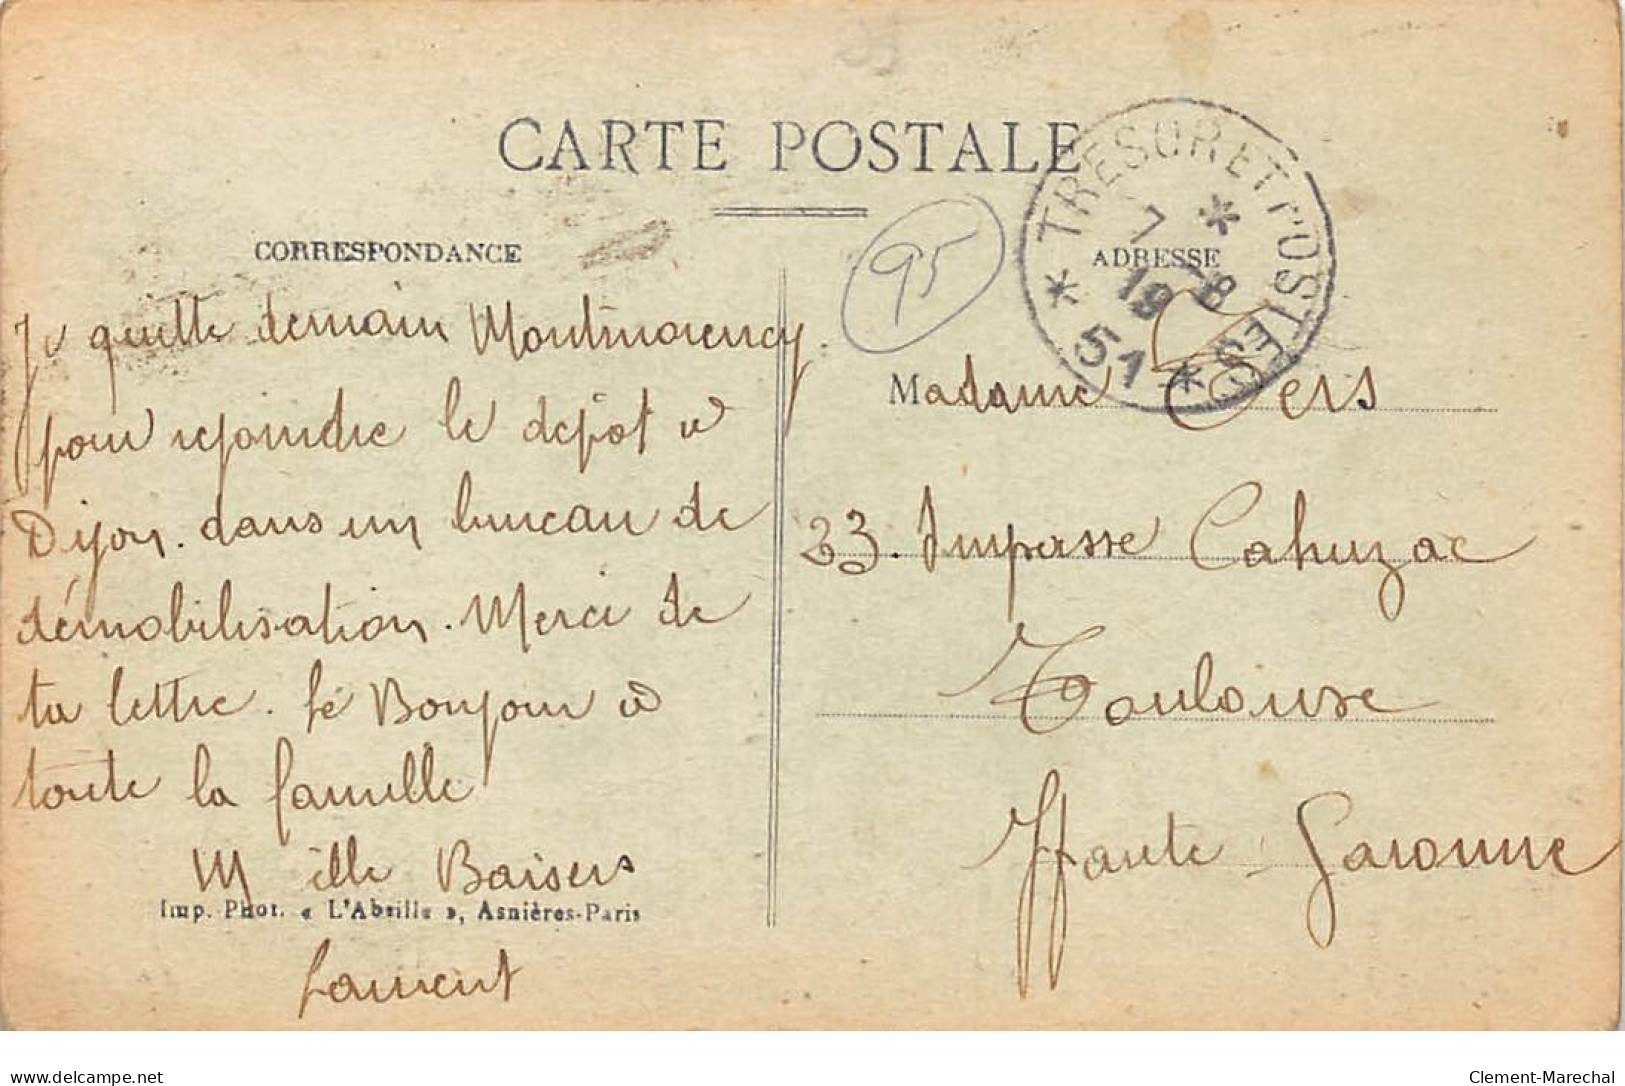 CARTE POSTALE
CORRESPONDANCE
Je quitte demain Montmorency.
pour rejoindre le dépôt à
Dijon. dans un bureau de
démobilisation. Merci de
ta lettre. Le Bonjour à
toute la famille
Mille Baisers
Imp. Phot. « L'Abeille », Asnières-Paris
Laurent
95
* TRESOR ET POSTES *
7 *
19 8
* 51 *
ADRESSE
Madame Cers
33. Impasse Cahuzac
Toulouse
Haute-Garonne
delcampe.net
Clement-Marechal